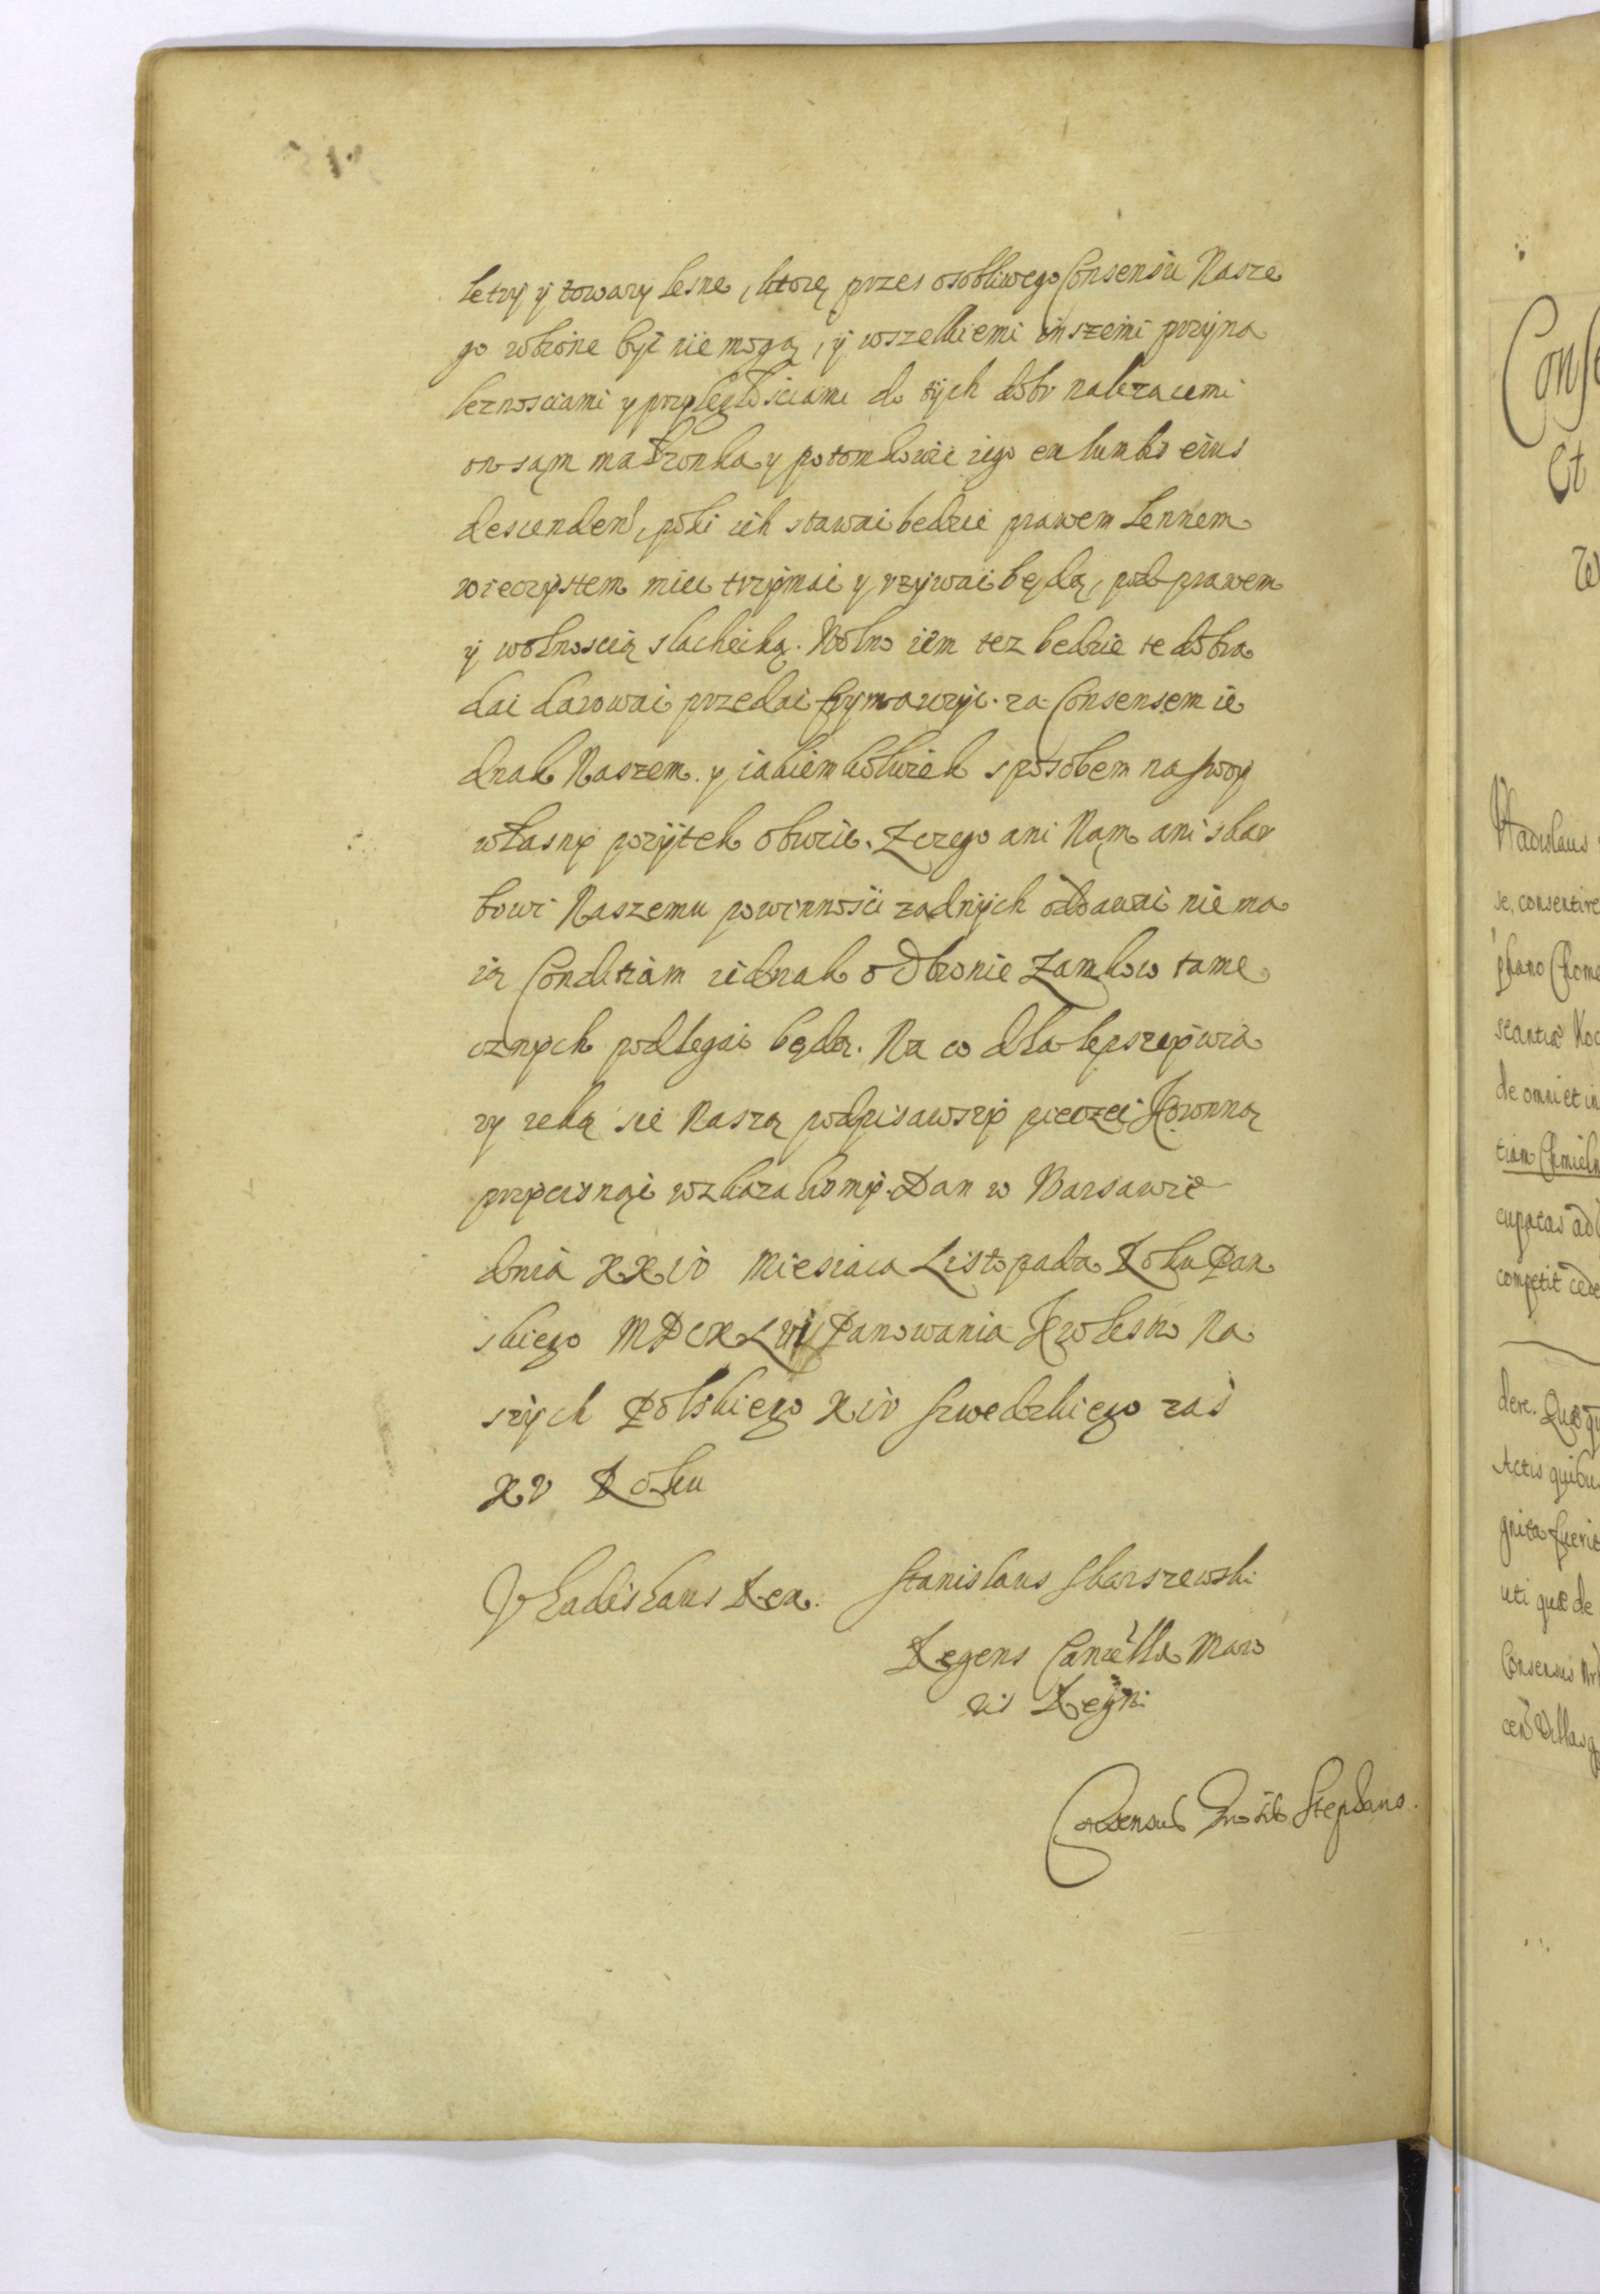 letry ÿ towary lesne, ktorę przes osobliwego Consensu Nasze
go robione być nie mogą, ÿ wszelkiemi inszemi przyna
leznosciami y przyległosciami do tych dobr nalezacemi
on sąm małzonka y potomkowie iego ex lumbis eius
descenden, poki ich stawać bedzie prawem Lennem
wieczystem miec trzymac y vzywać będą, pod prawem
ÿ wolnoscią slachecką. Wolno iem tez bedzie te dobra
dac darowac przedac frymarczyc za Consensem ie
dnak Naszem y iakiemkolwiek sposobem na swoy
własny pozytek obrocic. Z czego ani Nąm ani skar
bowi Naszemu powinnosci zadnych oddawać nie ma
ią Conditiom iednak o Obronie Zamkow tame
cznych podlegać będą. Na co dla lepszey wia
ry ręką się Naszą podpisawszy pieczęć Koronną
przycisnąć rozkazalismy. Dan w Warsawie
dnia XXIV Miesiaca Listopada Roku Pan
skiego MDCXLVI Panowania Krolestw Na
szych Polskiego XIV Szwedzkiego zaś
XV Roku
Vladislaus Rex.
Stanislaus Skarszewski
Regens Cancella Maio
ris Regni
Consensus Stephano.
Conse
Et
Vladislaus
se, consentire
phano Chome
stantia
de omni et in
tiam Chmieln
cupatas ad
competit cede
dere. Quoqu
Actis quibus
gnita fuerit
uti quæ de
Consensus
cen Villas q